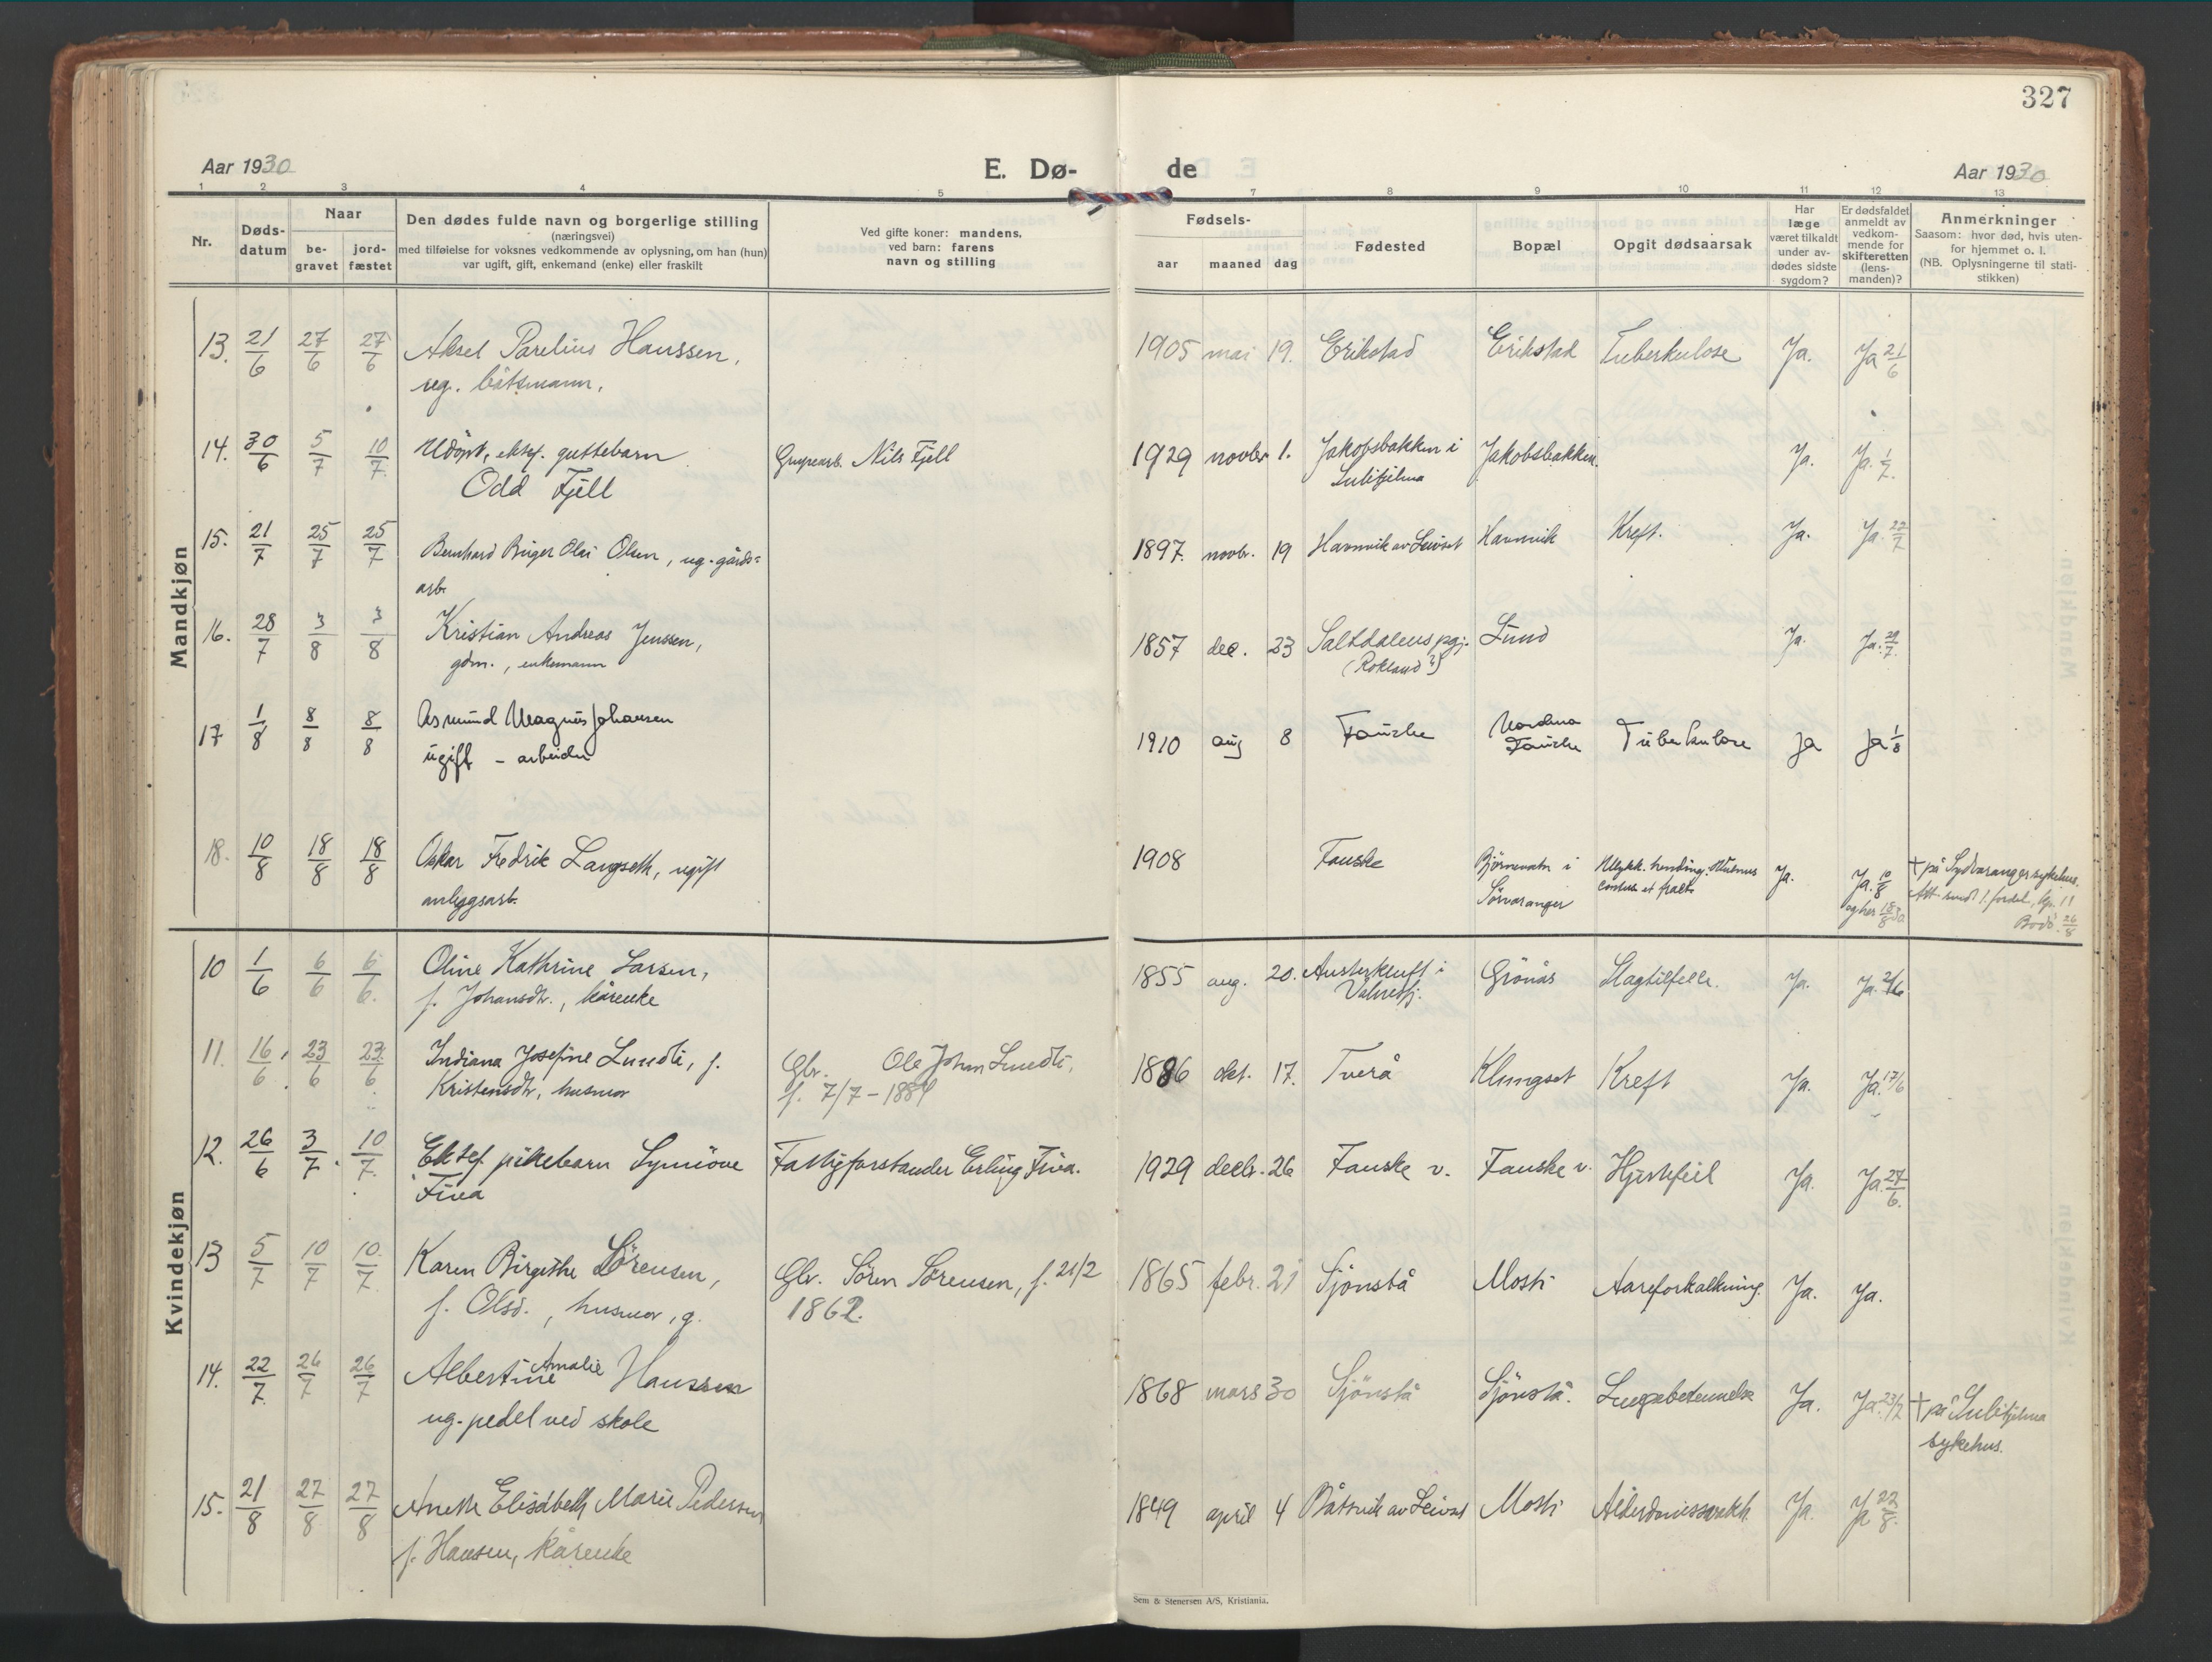 327
Aar 1930
E. Dø- de
Aar 1930
1 2 3 4 5 7 8 9 10 11 12 13
Nr.
Døds-
datum
Naar
be-
gravet
jord-
fæstet
Den dødes fulde navn og borgerlige stilling
(næringsvei)
med tilføielse for voksnes vedkommende av oplysning, om han (hun)
var ugift, gift, enkemand (enke) eller fraskilt
Ved gifte koner: mandens,
ved barn: farens
navn og stilling
Fødsels-
aar maaned dag
Fødested
Bopæl
Opgit dødsaarsak
Har
læge
været tilkaldt
under av-
dødes sidste
sygdom?
Er dødsfaldet
anmeldt av
vedkom-
mende for
skifteretten
(lens-
manden)?
Anmerkninger
Saasom: hvor død, hvis uten-
for hjemmet o. l.
(NB. Oplysningerne til stati-
stikken)
Mandkjøn
13. 21/6 27/6 27/6 Aksel Parelius Hanssen, 1905 mai 19. Erikstad Erikstad Tuberkulose Ja. Ja 21/6
ug. båtsmann.
14. 30/6 5/7 10/7 Udöpt, ektef. guttebarn Grupearb. Nils Fjell 1929 novbr 1. Jakobsbakken i Jakobsbakken. Ja. Ja. 1/7
Odd Fjell Sulitjelma
15. 21/7 25/7 25/7 Bernhard Birger Olai Olsen, ug. gårds= 1897. novbr. 19 Havnvik av Leivset Havnvik Kreft. Ja. Ja. 22/7
arb.
16. 28/7 3/8 3/8 Kristian Andreas Jenssen, 1857 dec. 23 Saltdalens pgj. Lund Ja. Ja. 29/7
gdm., enkemann (Rokland?)
17 1/8 8/8 8/8 Asmund Magnus Johansen 1910 aug 8 Fauske Nordma Fauske Tuberkulose Ja Ja 1/8
ugift - arbeider
18. 10/8 18/8 18/8 Oskar Fredrik Langseth, ugift 1908 Fauske Bjørnevatn i Sørvaranger Ulykk. hending. Ja. Ja. 10/8 † på Sydvaranger sykehus.
anleggsarb. og her 18/8 Bodö 26/8
Kvindekjøn
10 1/6 6/6 6/6. Oline Kathrine Larsen, 1855 aug. 20. Austerkluft i Grönås Slagtilfelle. Ja. Ja. 2/6
f. Johansdtr., kårenke Valnesfj.
11. 16/6 23/6 23/6 Indiana Josefine Lundli, f. Gbr. Ole Johan Lundli, 1886 okt. 17. Tverå Klungset Kreft Ja. Ja. 17/6
Kristensdtr, husmor f. 7/7 - 1884
12. 26/6 3/7. 10/7. Ektef. pikebarn Synnöve Fattigforstander Erling Finea. 1929 decbr. 26 Fauske v. Fauske v. Hjertefeil Ja. Ja. 27/6.
13 5/7 10/7 10/7. Karen Birgithe Sörensen, Gbr. Sören Sörensen, f. 21/2 1865 febr. 21 Sjönstå Mosti Aareforkalkning. Ja. Ja.
f. Olsd., husmor, g. 1862.
14. 22/7. 26/7 26/7 Albertine Amalie Hanssen 1868 mars 30 Sjönstå Sjönstå. Lungebetennelse Ja. Ja. 23/7 † på Sulitjelma
ug. pedel ved skole sykehus.
15. 21/8 27/8 27/8 Anette Elisabeth Marie Pedersen 1849 april 4 Båtsvik av Leivset Mosti Alderdomssvakh. Ja. Ja 22/8.
f. Hansen, kårenke
Sem & Stenersen A/S, Kristiania.